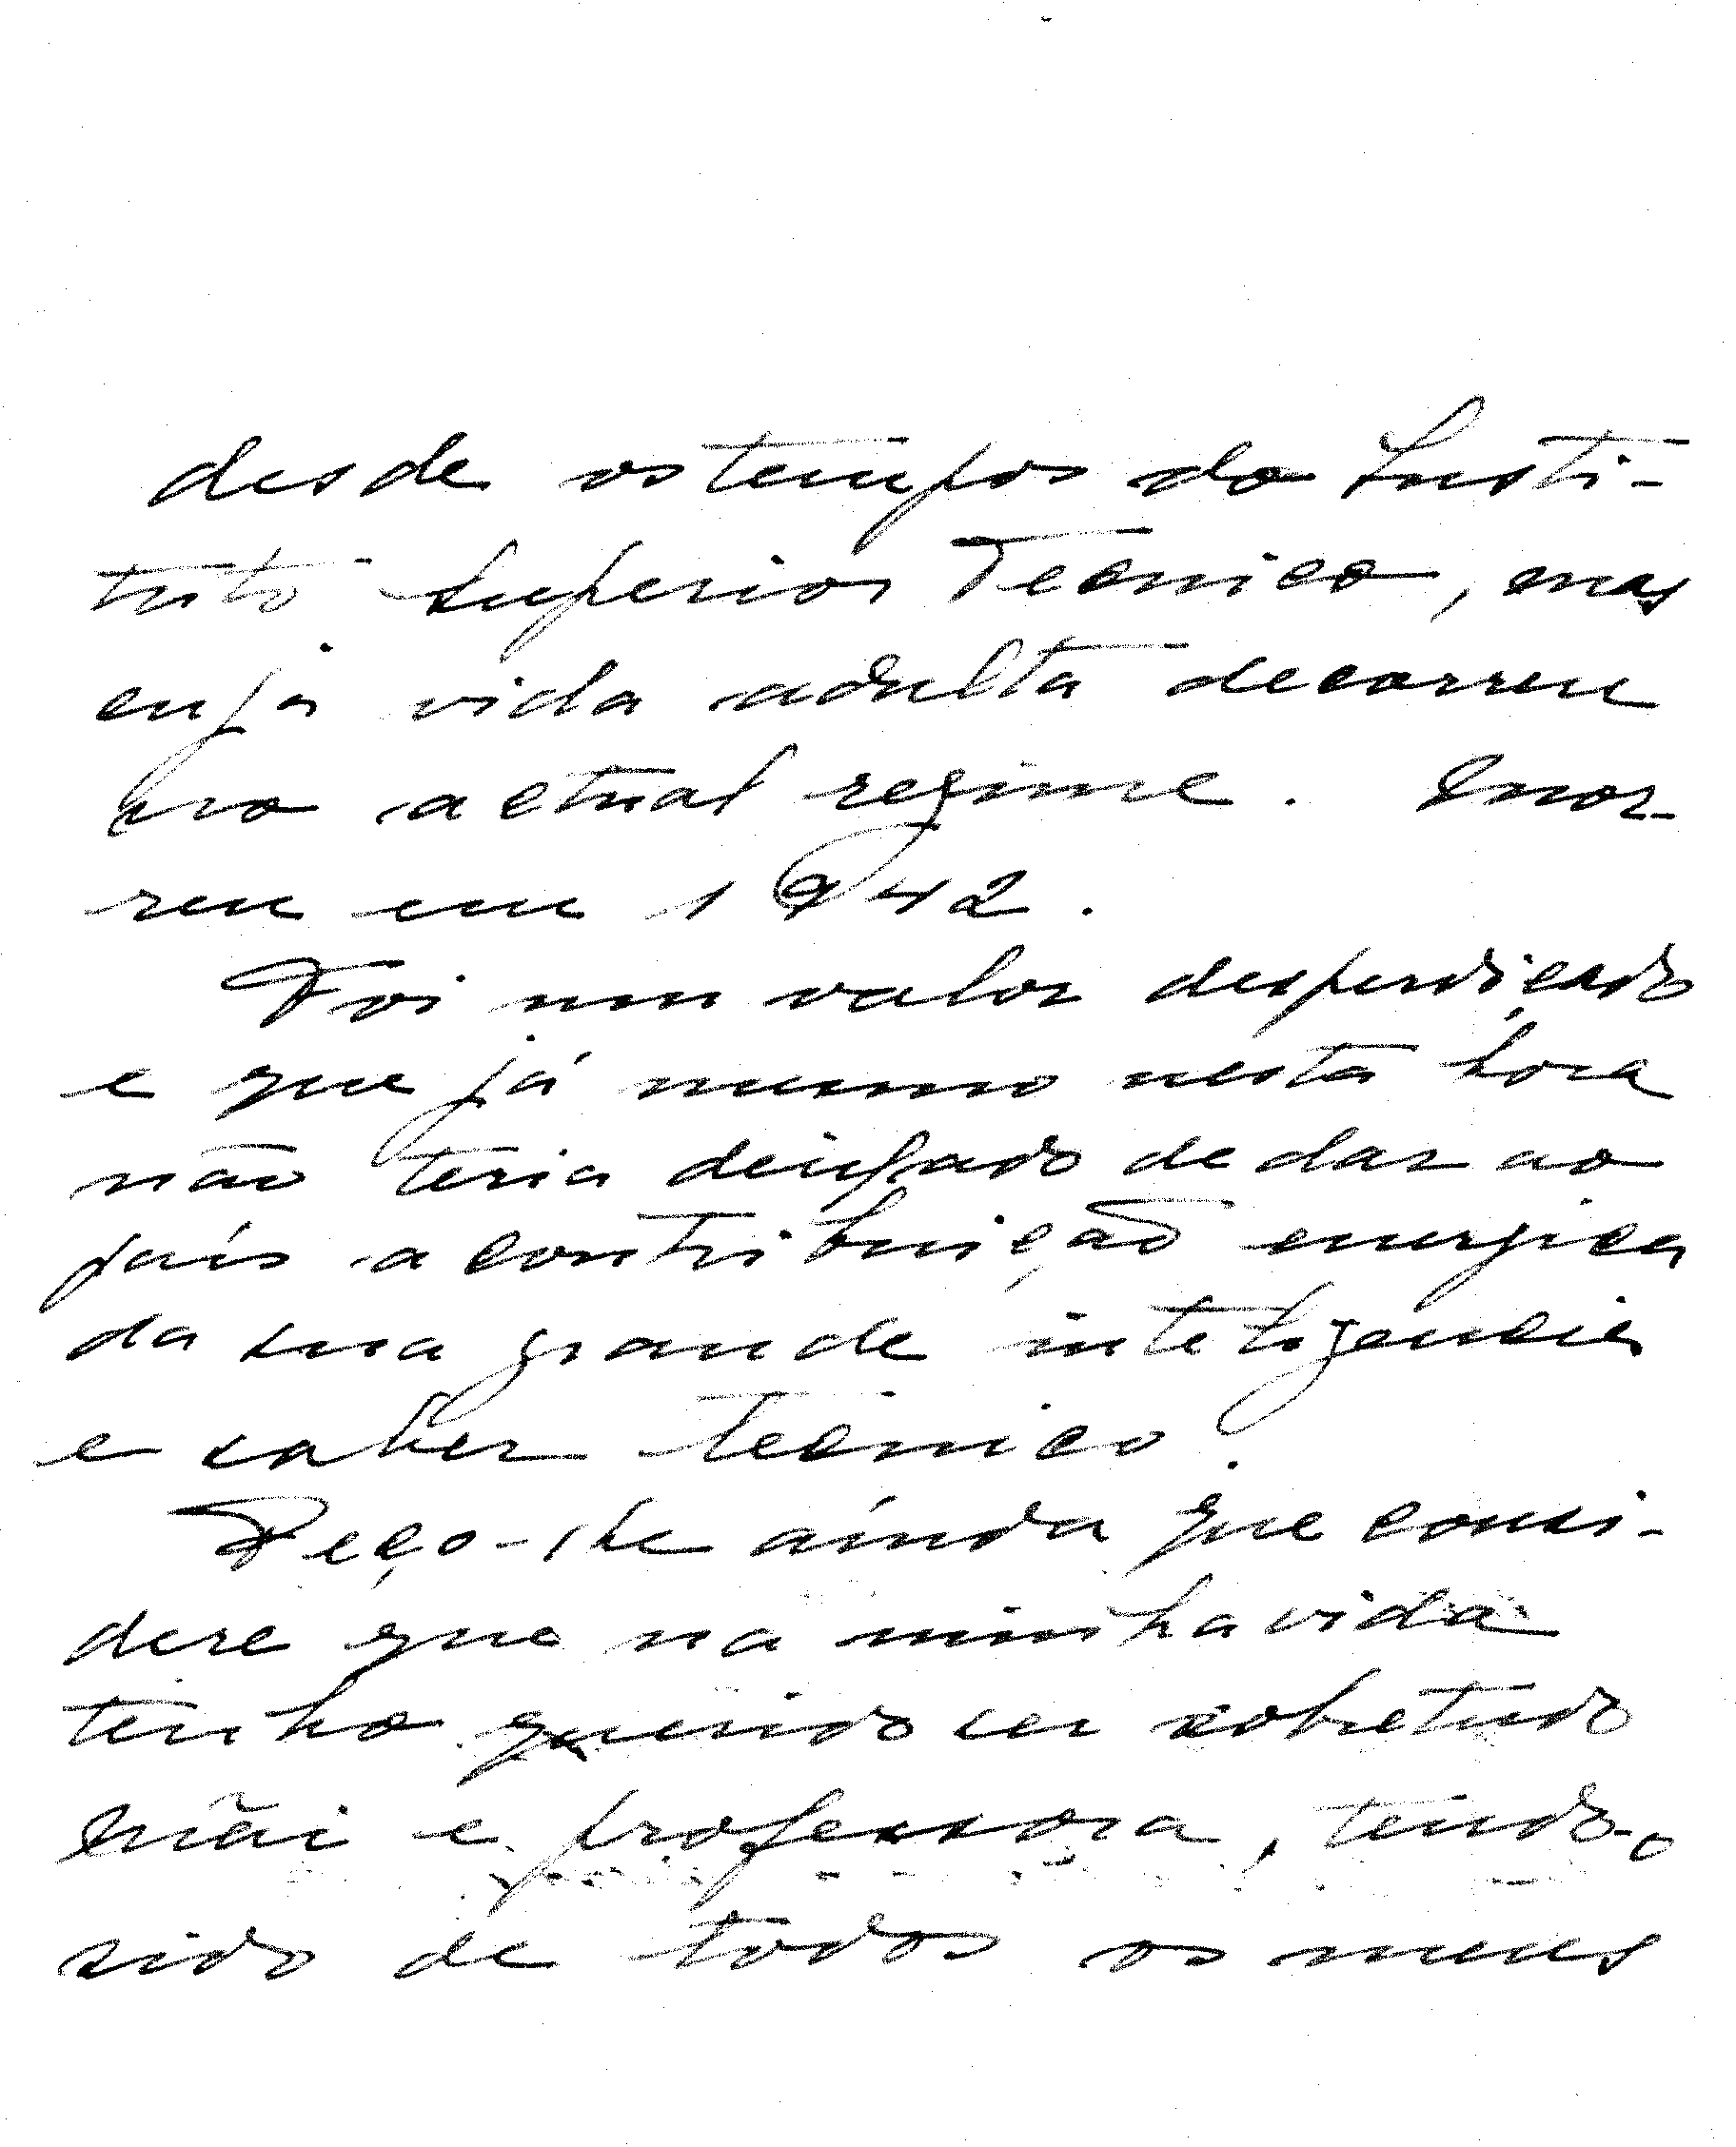 desde os tempos do Insti-
tuto Superior Tecnico, mas
cuja vida adulta decorreu
no actual regime. Mor-
reu em 1942.
Foi um valor desperdiçado
e que já mesmo nesta hora
não teria deixado de dar ao
país a contribuição energica
da sua grande inteligencia
e saber tecnico.
Peço-lhe ainda que consi-
dere que na minha vida
tenho querido ser sobretudo
mãi e professora, tendo-o
sido de todos os meus